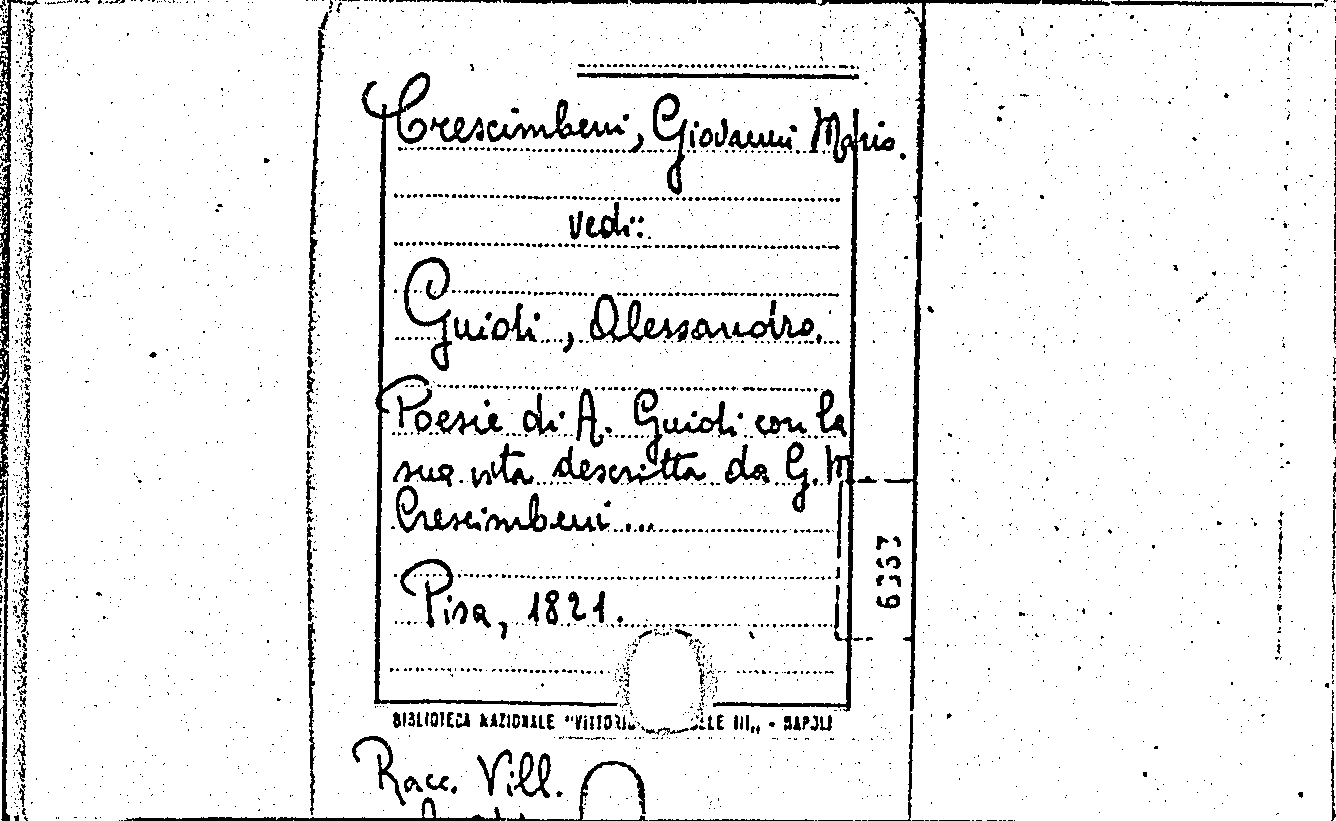 Crescimbeni, Giovanni Mario.
vedi:
Guidi, Alessandro.
Poesie di A. Guidi con la
sua vita descritta da G. M
Crescimbeni...
Pisa, 1821.
6337
BIBLIOTECA NAZIONALE "VITTORIO ELE III„ - NAPOLI
Racc. Vill.